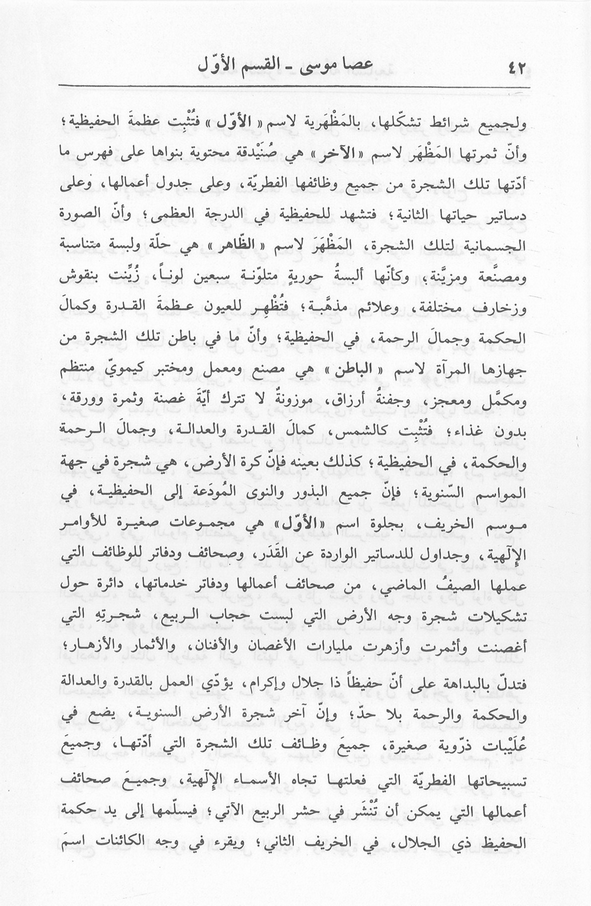 ٤٢
عصا موسى ـ القسم الأوّل
ولجميع شرائط تشكّلها، بالمَظْهَرية لاسم «الأوّل» فتُثْبِت عظمةَ الحفيظية؛
وأنّ ثمرتها المَظْهَر لاسم «الآخر» هي صُنَيْدقة محتوية بنواها على فهرس ما
أدّتها تلك الشجرة من جميع وظائفها الفطريّة، وعلى جدول أعمالها، وعلى
دساتير حياتها الثانية؛ فتشهد للحفيظية في الدرجة العظمى؛ وأنّ الصورة
الجسمانية لتلك الشجرة، المَظْهَرَ لاسم «الظّاهر» هي حلّة ولبسة متناسبة
ومصنَّعة ومزيَّنة، وكأنّها ألبسةُ حوريةٍ متلوّنة سبعين لوناً، زُيِّنت بنقوش
وزخارف مختلفة، وعلائم مذهَّبة؛ فتُظْهِر للعيون عظمةَ القدرة وكمالَ
الحكمة وجمالَ الرحمة، في الحفيظية؛ وأنّ ما في باطن تلك الشجرة من
جهازها المرآة لاسم «الباطن» هي مصنع ومعمل ومختبر كيمويّ منتظم
ومكمَّل ومعجز، وجفنةُ أرزاق، موزونةٌ لا تترك أيّةَ غصنة وثمرة وورقة،
بدون غذاء؛ فتُثْبِت كالشمس، كمالَ القدرة والعدالة، وجمالَ الرحمة
والحكمة، في الحفيظية؛ كذلك بعينه فإنّ كرة الأرض، هي شجرة في جهة
المواسم السّنوية؛ فإنّ جميع البذور والنوى المُودَعة إلى الحفيظية، في
موسم الخريف، بجلوة اسم «الأوّل» هي مجموعات صغيرة للأوامر
الإلٓهية، وجداول للدساتير الواردة عن القَدَر، وصحائف ودفاتر للوظائف التي
عملها الصيفُ الماضي، من صحائف أعمالها ودفاتر خدماتها، دائرة حول
تشكيلات شجرة وجه الأرض التي لبست حجاب الربيع، شجرتِهِ التي
أغصنت وأثمرت وأزهرت مليارات الأغصان والأفنان، والأثمار والأزهار؛
فتدلّ بالبداهة على أنّ حفيظاً ذا جلال وإكرام، يؤدّي العمل بالقدرة والعدالة
والحكمة والرحمة بلا حدّ؛ وإنّ آخر شجرة الأرض السنوية، يضع في
عُلَيْبات ذرّوية صغيرة، جميعَ وظائف تلك الشجرة التي أدّتها، وجميعَ
تسبيحاتها الفطريّة التي فعلتها تجاه الأسماء الإلٓهية، وجميعَ صحائف
أعمالها التي يمكن أن تُنْشَر في حشر الربيع الآتي؛ فيسلّمها إلى يد حكمة
الحفيظ ذي الجلال، في الخريف الثاني؛ ويقرء في وجه الكائنات اسمَ